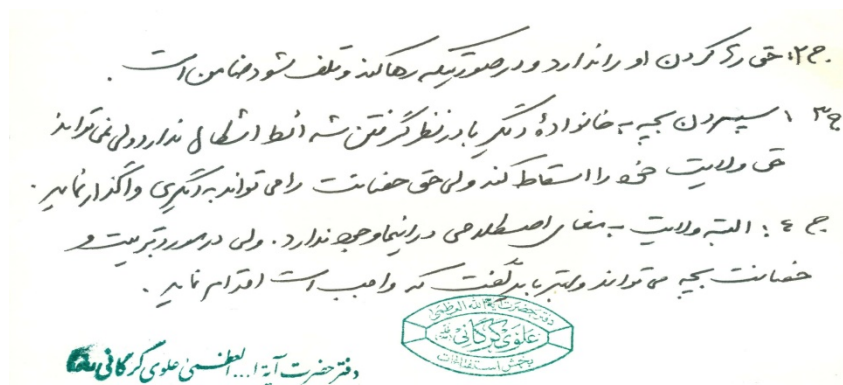 ج۲: حق رد کردن او را ندارد و در صورتیکه رها کند و تلف شود ضامن است.
ج۳: سپردن بچه به خانوادهٔ دیگر با در نظر گرفتن شرائط اشکال ندارد ولی نمی تواند
حق ولایت خود را اسقاط کند ولی حق حضانت را می تواند به دیگری واگذار نماید.
ج ٤: البته ولایت به معنای اصطلاحی در اینجا وجود ندارد. ولی در مورد تربیت و
حضانت بچه می تواند و بلکه باید گفت که واجب است اقدام نماید.
دفتر حضرت آیة الله العظمی
علوی گرگانی
بخش استفتائات
دفتر حضرت آیة ا... العظمی علوی گرگانی